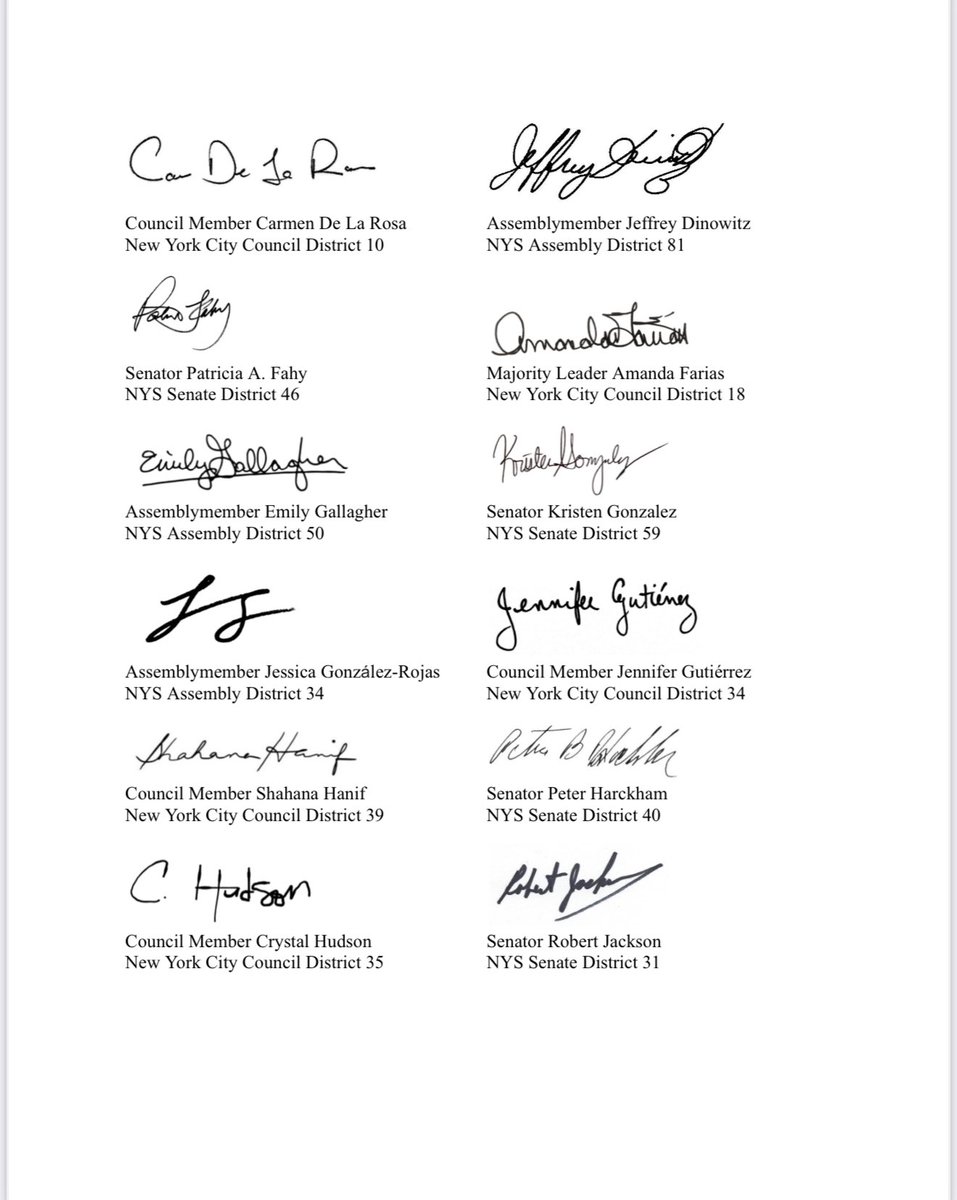 Car De La Ro
Jeffrey Dinowitz
Council Member Carmen De La Rosa
New York City Council District 10
Assemblymember Jeffrey Dinowitz
NYS Assembly District 81
Fahy
Amanda Farías
Senator Patricia A. Fahy
NYS Senate District 46
Majority Leader Amanda Farias
New York City Council District 18
Emily Gallagher
Kristen Gonzalez
Assemblymember Emily Gallagher
NYS Assembly District 50
Senator Kristen Gonzalez
NYS Senate District 59
Jennifer Gutiérrez
Assemblymember Jessica González-Rojas
NYS Assembly District 34
Council Member Jennifer Gutiérrez
New York City Council District 34
Shahana Hanif
Peter B Harckham
Council Member Shahana Hanif
New York City Council District 39
Senator Peter Harckham
NYS Senate District 40
C. Hudson
Robert Jackson
Council Member Crystal Hudson
New York City Council District 35
Senator Robert Jackson
NYS Senate District 31